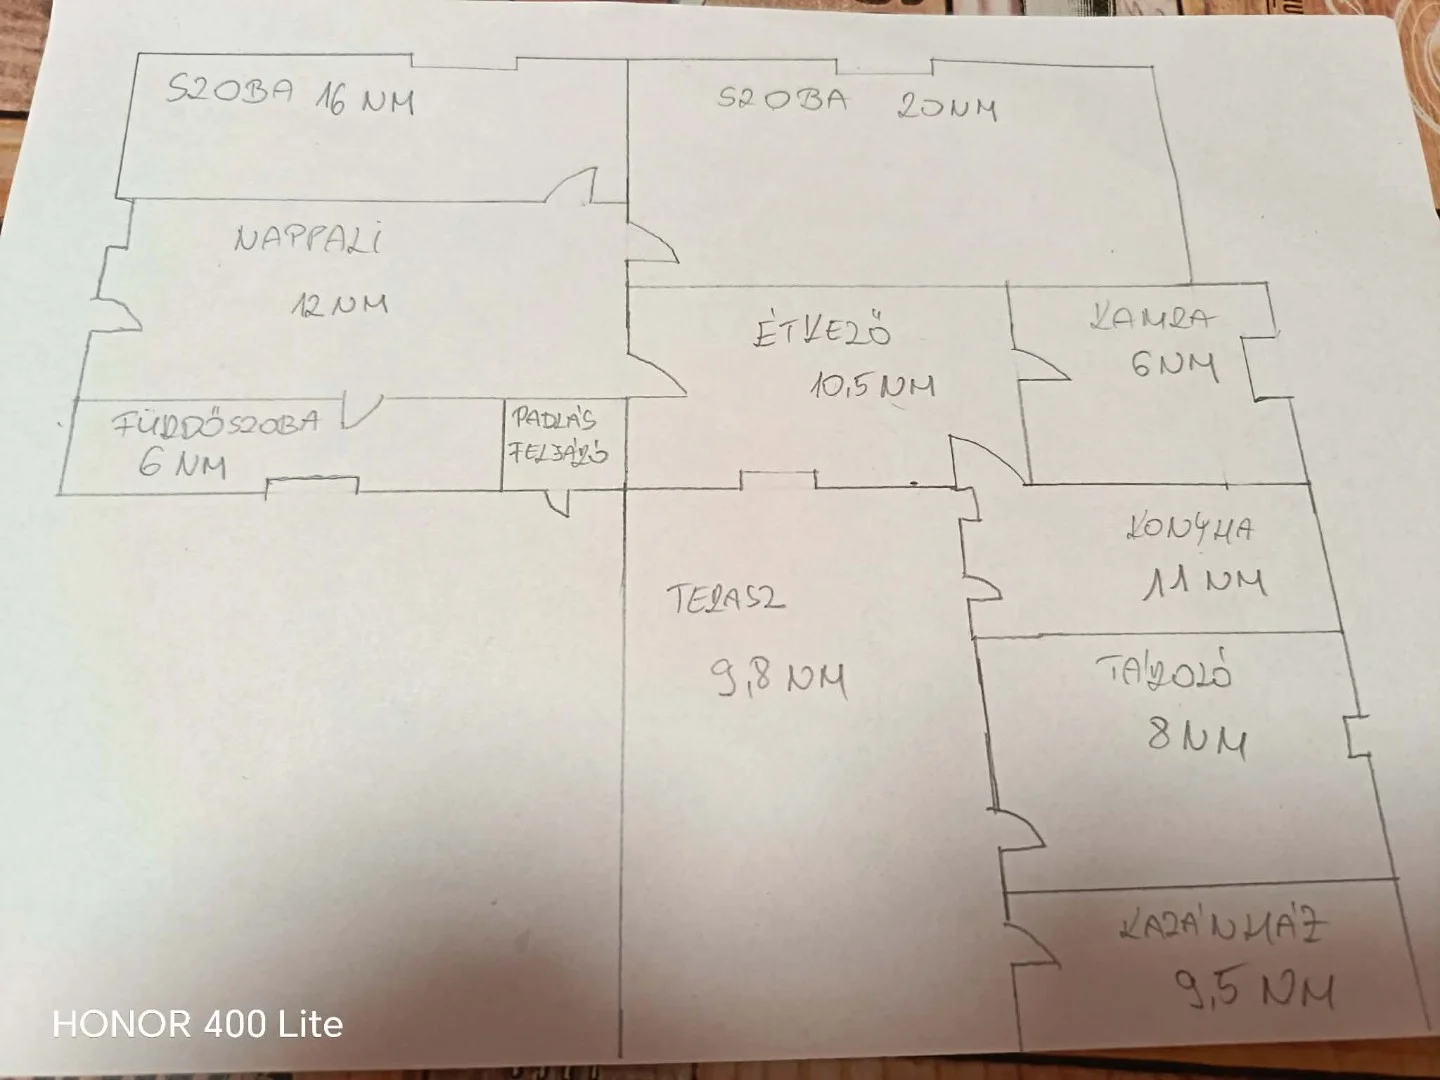 SZOBA 16 NM
SZOBA 20 NM
NAPPALI
12 NM
ÉTKEZŐ
10,5 NM
KAMRA
6 NM
FÜRDŐSZOBA
6 NM
PADLÁS
FELJÁRÓ
KONYHA
11 NM
TERASZ
9,8 NM
TÁROLÓ
8 NM
KAZÁNHÁZ
9,5 NM
HONOR 400 Lite